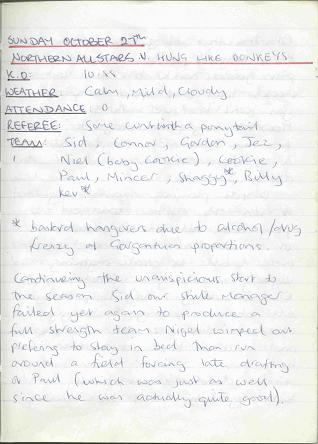 SUNDAY OCTOBER 27th
NORTHERN ALLSTARS V. HUNG LIKE DONKEYS
K.O: 10.55
WEATHER: Calm, Mild, Cloudy
ATTENDANCE: 0
REFEREE: Some cunt with a ponytail
TEAM: Sid, Connor, Gordon, Jez,
Niel (baby Cookie), Cookie,
Paul, Mincer, Shaggy*, Billy
Kev*
* bastard hangovers due to alcohol/drug
frenzy of Gargantuan proportions.
Continueing the unauspicious start to
the season Sid our Manager
failed yet again to produce a
full strength team. Nigel wimped out
prefering to stay in bed than run
around a field forcing late drafting
of Paul (which was just as well
since he was actually quite good).